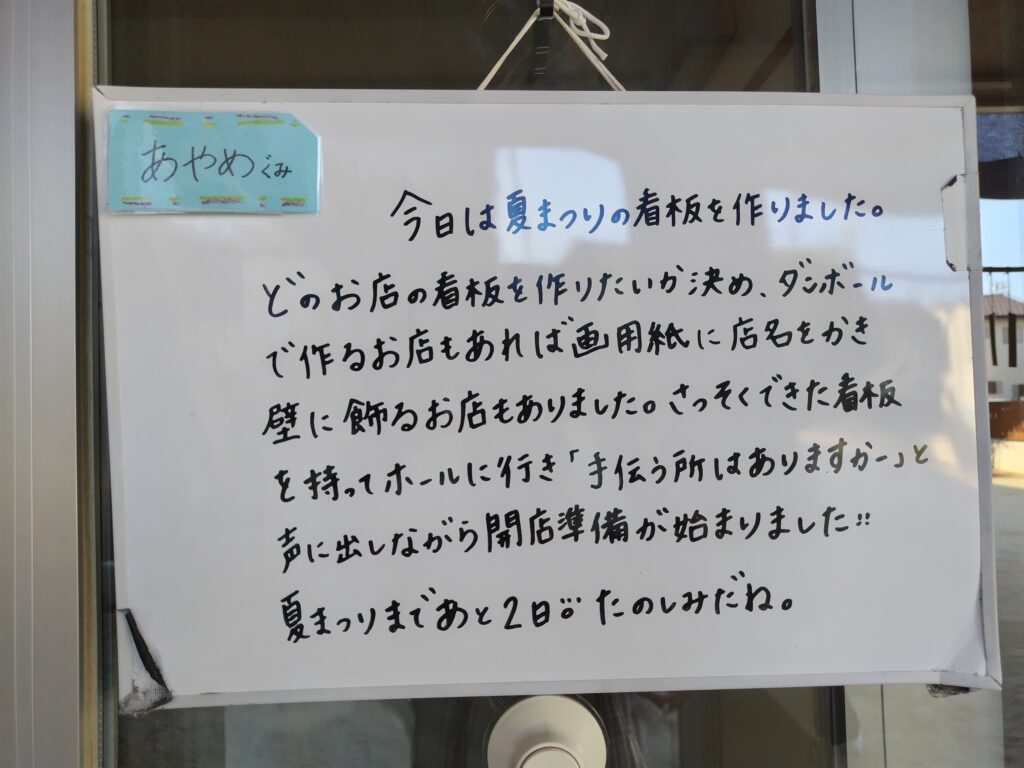 あやめぐみ
今日は夏まつりの看板を作りました。
どのお店の看板を作りたいか決め、ダンボール
で作るお店もあれば画用紙に店名をかき
壁に飾るお店もありました。さっそくできた看板
を持ってホールに行き「手伝う所はありますかー」と
声に出しながら開店準備が始まりました!!
夏まつりまであと2日!! たのしみだね。